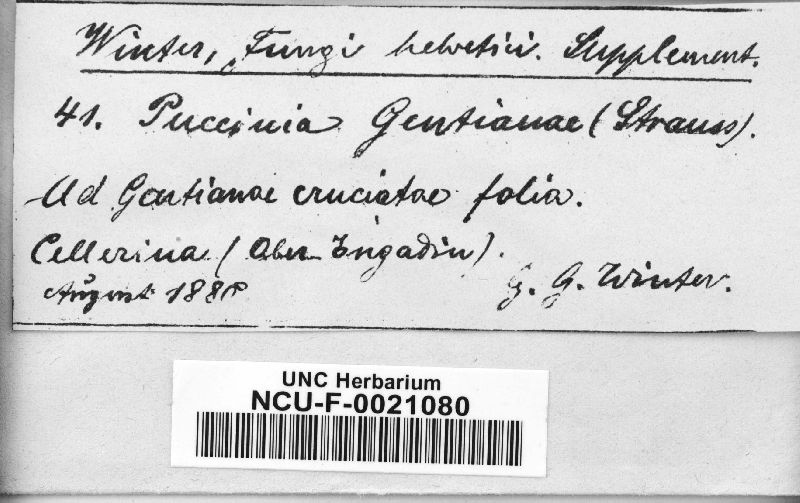 Winter, Fungi helvetici. Supplement.
41. Puccinia Gentianae (Strauss).
Ad Gentianae cruciatae folia.
Cellerina (Ober-Engadin).
August G. G. Winter.
UNC Herbarium
NCU-F-0021080